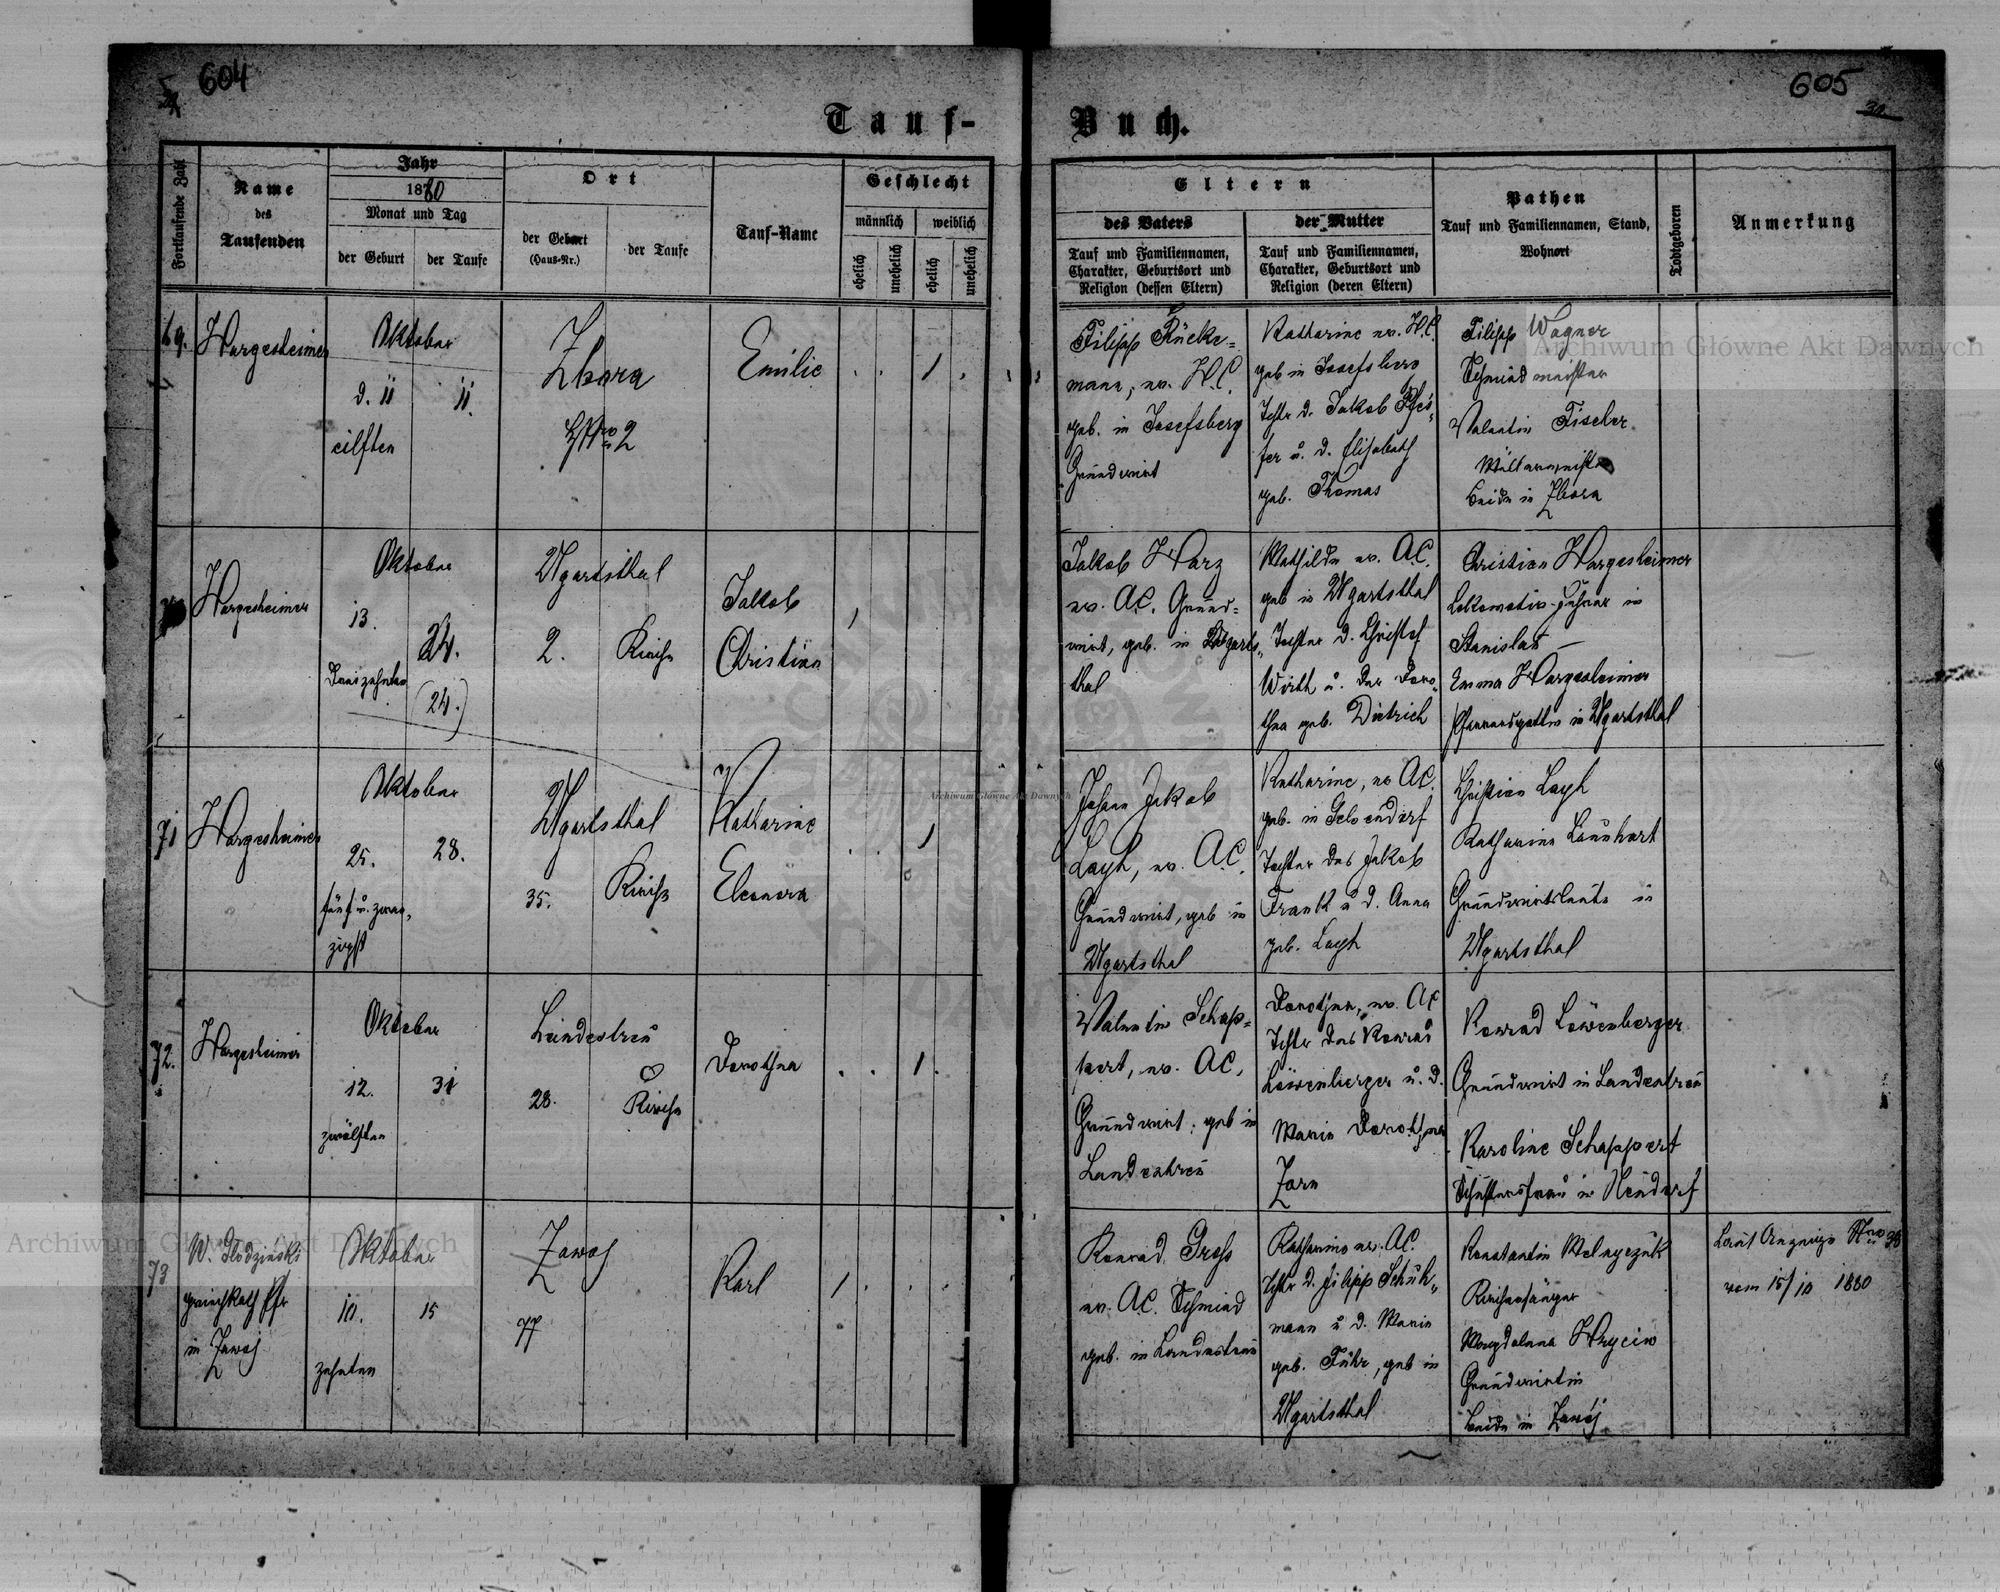 604
605
30.
Tauf-
Buch.
Fortlaufende Zahl
Name
des
Taufenden
Jahr
1880
Monat und Tag
der Geburt
der Taufe
Ort
der Geburt
(Haus-Nr.)
der Taufe
Tauf-Name
Geschlecht
männlich
weiblich
ehelich
unehelich
ehelich
unehelich
Eltern
des Vaters
Tauf und Familiennamen,
Charakter, Geburtsort und
Religion (dessen Eltern)
der Mutter
Tauf und Familiennamen,
Charakter, Geburtsort und
Religion (deren Eltern)
Pathen
Tauf und Familiennamen, Stand,
Wohnort
Todtgeboren
Anmerkung
69.
Hargesheimer
Oktober
d. 11
11.
eilften
Zbora
HNro 2
Emilie
Filipp Rücke=
mann, ev. H.C.
geb. in Josefsberg
Grundwirt
Katharine ev. H.C.
geb in Josefsberg
Tchtr d. Jakob Pfei=
fer u. d. Elisabeth
geb. Thomas
Filipp Wagner
Schmiedmeister
Valentin Fischer
Müllermeister
beide in Zbora
Hargesheimer
Oktober
13.
24.
Dreizehnten
(24.)
Ugartsthal
2.
Kirche
Jakob
Christian
Jakob Harz
ev. AC. Grund=
wirt, geb. in Ugarts=
thal
Mathilde ev. AC.
geb in Ugartsthal
Tochter d. Christof
Wirth u. der Doro=
thea geb. Dietrich
Christian Hargesheimer
Lokomotiv-Führer in
Stanislau
Emma Hargesheimer
Pfarrersgattin in Ugartsthal
71
Hargesheimer
Oktober
25.
28.
fünf u. zwan=
zigst
Ugartsthal
35.
Kirche
Katharine
Eleonora
Johann Jakob
Layh, ev. A.C.
Grundwirt, geb in
Ugartsthal
Katharine, ev AC.
geb. in Gelsendorf
Tochter des Jakob
Frank u d. Anna
geb. Layh
Christian Layh
Katharina Launhart
Grundwirtsleute in
Ugartsthal
72.
Hargesheimer
Oktober
12.
31
zwölften
Landestreu
28.
Kirche
Dorothea
Valentin Schap=
pert, ev. AC.
Grundwirt, geb in
Landestreu
Dorothea, ev. AC
Tchtr des Konrad
Löwenberger u. d.
Marie Dorothea
Zorn
Konrad Löwenberger
Grundwirt in Landestreu
Karoline Schappert
Schustersfrau in Neudorf
73
W. Głodzinski
griechkath Pfr
in Zawoj
Oktober
10.
15
zehnten
Zawoj
77
Karl
Konrad Gross
ev. AC. Schmied
geb. in Landestreu
Katharina ev. AC.
Tchtr d. Filipp Schuh=
mann u d. Marie
geb. Führ, geb in
Ugartsthal
Konstantin Melnyczuk
Kirchensänger
Magdalena Hryciw
Grundwirtin
beide in Zawoj
Laut Anzeige Nro 38
vom 15/10 1880
Archiwum Główne Akt Dawnych
Archiwum Główne Akt Dawnych
Archiwum Główne Akt Dawnych